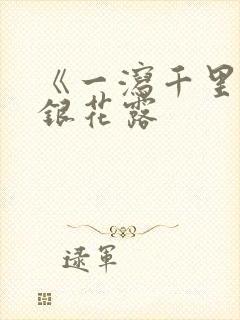 《一瀉千里
銀花露
逯軍